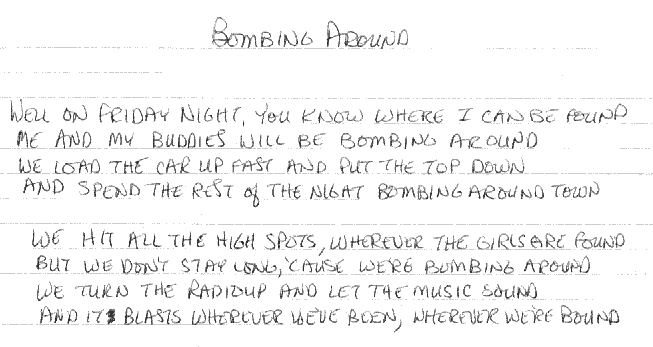 BOMBING AROUND
WELL ON FRIDAY NIGHT, YOU KNOW WHERE I CAN BE FOUND
ME AND MY BUDDIES WILL BE BOMBING AROUND
WE LOAD THE CAR UP FAST AND PUT THE TOP DOWN
AND SPEND THE REST of THE NIGHT BOMBING AROUND TOWN
WE HIT ALL THE HIGH SPOTS, WHEREVER THE GIRLS ARE FOUND
BUT WE DON'T STAY LONG, 'CAUSE WE'RE BOMBING AROUND
WE TURN THE RADIO UP AND LET THE MUSIC SOUND
AND IT BLASTS WHEREVER WE'VE BEEN, WHEREVER WE'RE BOUND